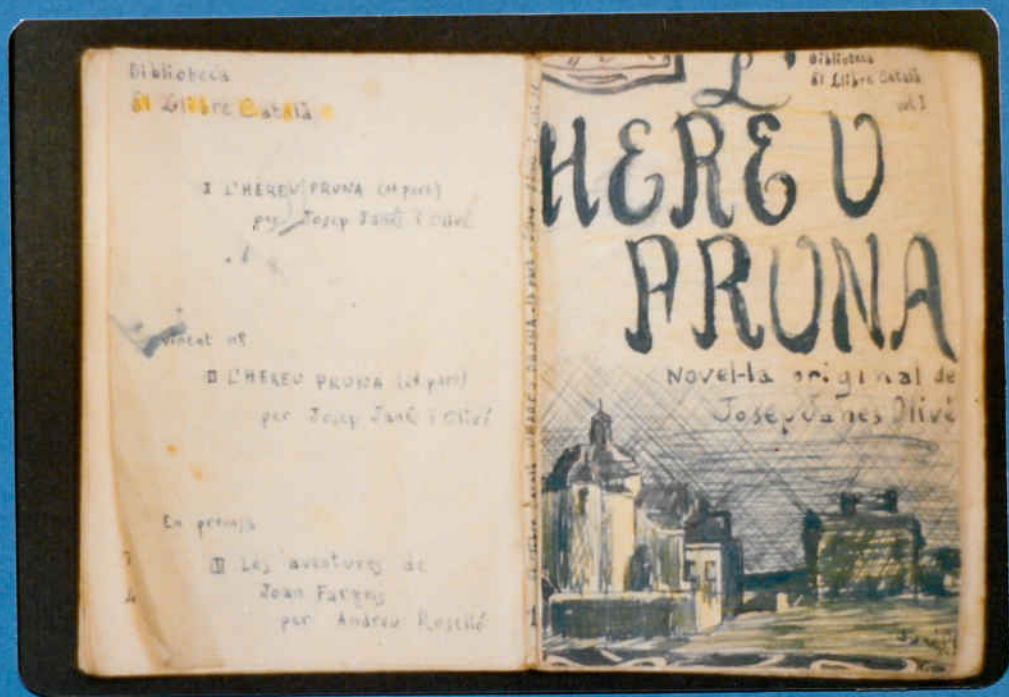 Biblioteca
El Llibre Català
I L'HEREU PRUNA (1ª part)
per Josep Jané i Olivé
II L'HEREU PRUNA (2ª part)
per Josep Jané i Olivé
En premsa
III Les aventures de
Joan Fargas
per Andreu Roselló
Biblioteca
El Llibre Català
vol I
L'
HEREU
PRUNA
Novel·la original de
Josep Janés Olivé